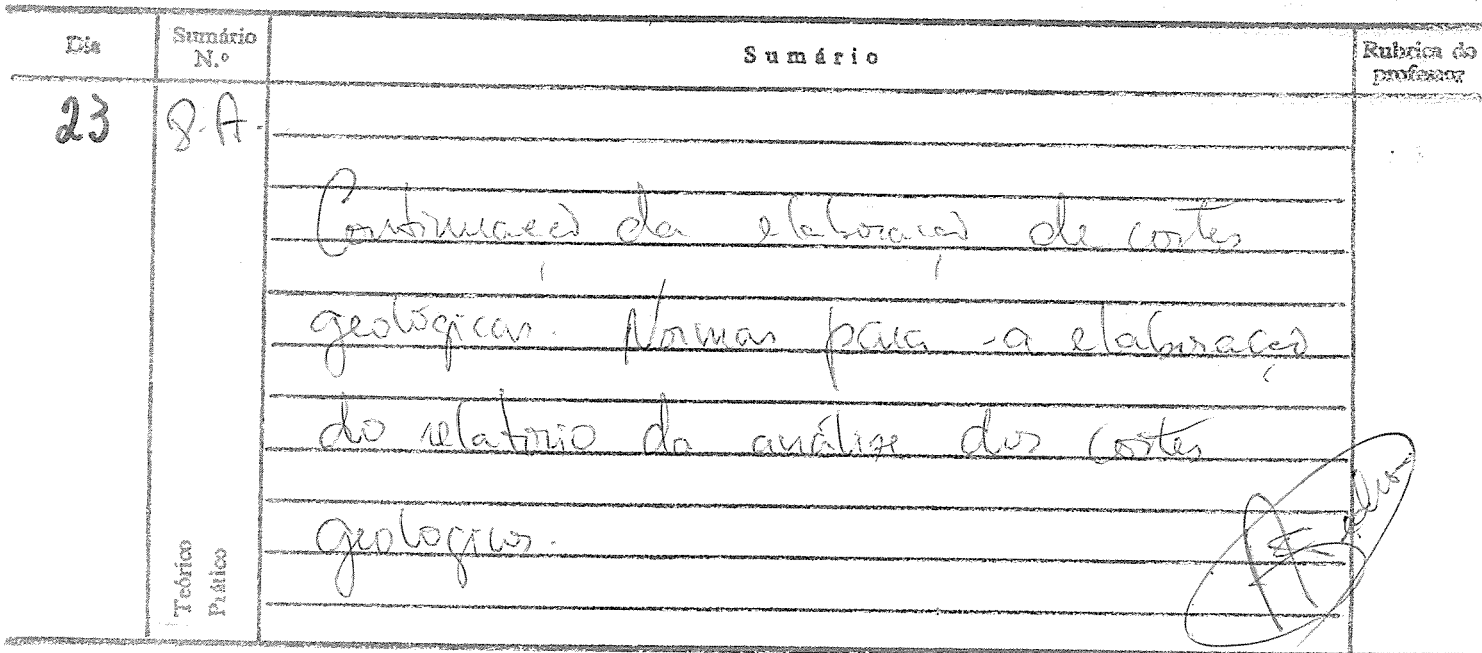 Dia Sumário N.º Sumário Rubrica do professor
23 8.A.
Continuação da elaboração de cortes
geológicos. Normas para a elaboração
do relatório da análise dos cortes
geológicos.
Teórico
Prático